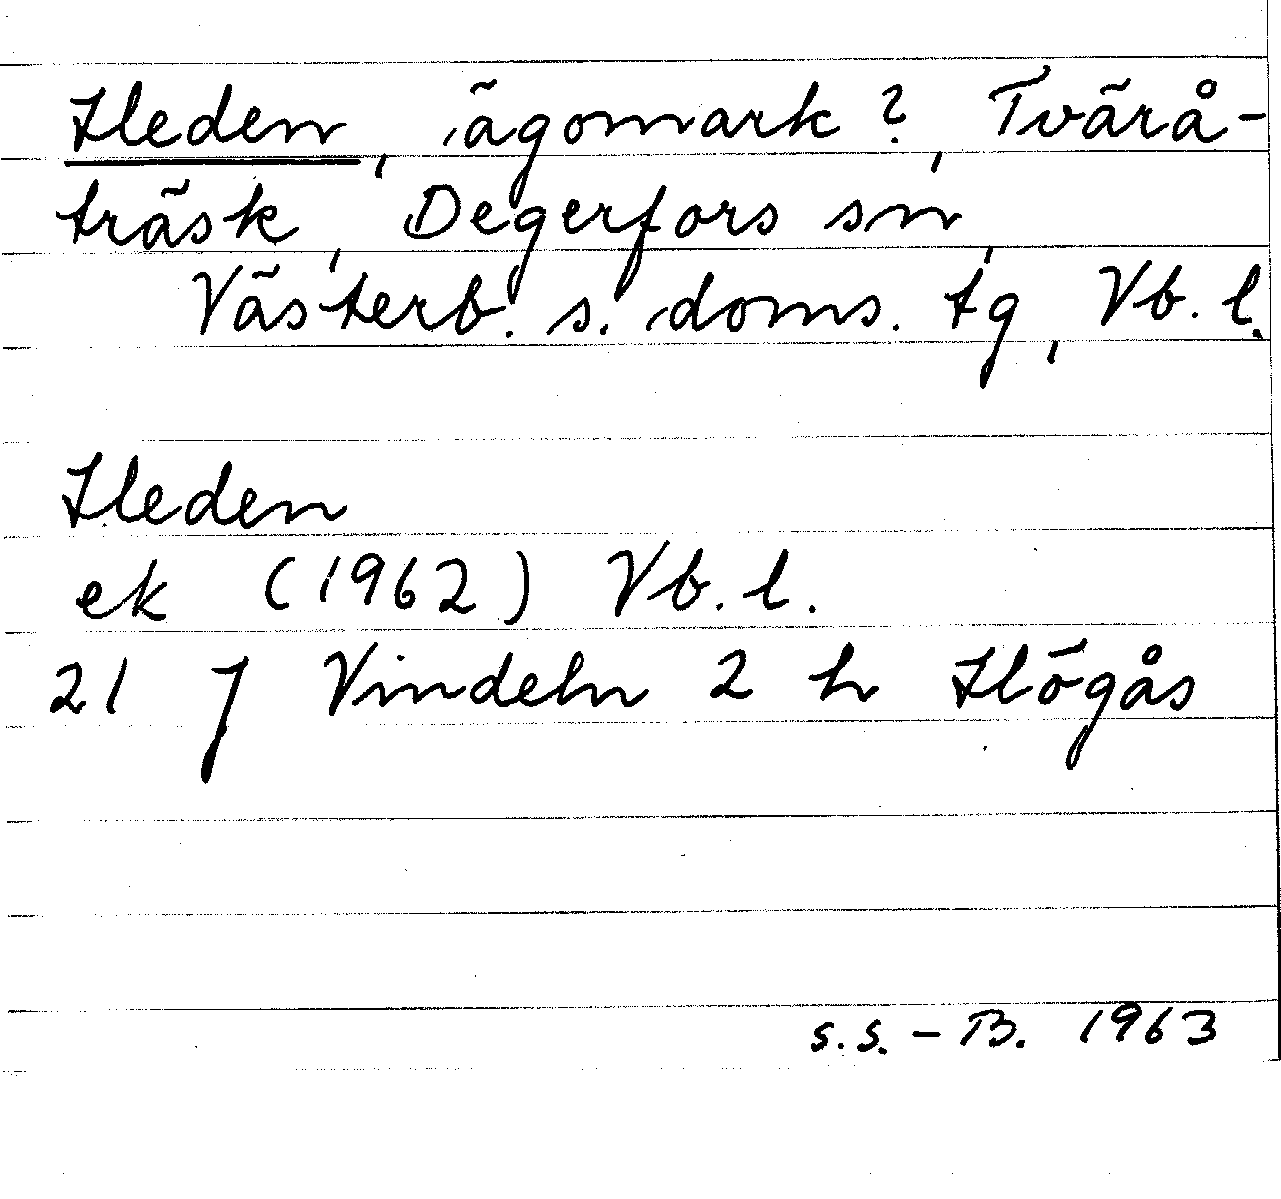 Heden, ägomark?, Tvärå-
träsk, Degerfors sn,
Västerb. s. doms. tg, Vb. l.
Heden
ek (1962) Vb. l.
21 J Vindeln 2 h Högås
S.S.-B. 1963